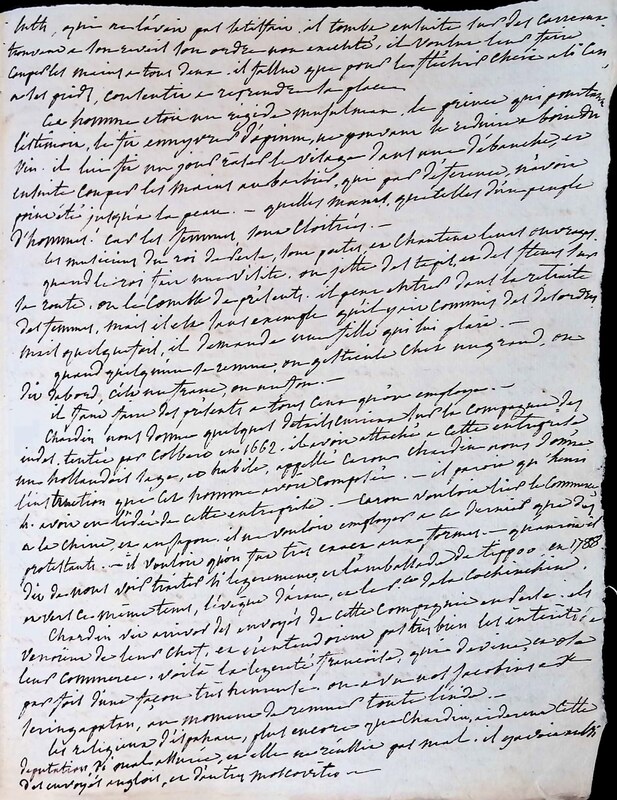 luth, qui ne l'avoit pas satisfait. il tombe ensuite sur des carreaux
trouvant a son reveil son ordre non executé, il voulut leur faire
couper les mains a tous deux. il fallut que pour les flechir
a ses pieds, consentit a reprendre sa place.
Cet homme etoit un rigide musulman. le prince qui pourtant
l'estimoit, le fit enyvrer d'opium, ne pouvant le reduire a boire du
vin. il lui fit un jour raser le visage dans une debauche, et
ensuite couper les mains au barbier, qui par déference, n'avoit
point été jusqu'a la peau. — quelles mœurs, que celles d'un peuple
d'hommes! car les femmes, sont cloitrées. —
les musiciens du roi de Perse, sont poetes, et chantent leurs ouvrages.
quand le roi fait une visite. on jette des et des fleurs sur
sa route. on le comble de présents. il peut entrer dans la retraite
des femmes, mais il est sans exemple qu'il y ait commis des désordres
mais quelquefois, il demande une fille qui lui plait. —
quand quelqu'un se remue, ou gesticule chez un grand, on
dit d'abord, c'est un franc, ou un fou. —
il faut faire des présents a tous ceux qu'on employe. —
Chardin nous donne quelques details curieux sur la compagnie des
indes, tentée par Colbert en 1662. il avoit attaché a cette entreprise
un hollandois sage, et habile, appellé Caron. Chardin nous donne
l'instruction que cet homme avoit composée. — il paroit qu'henri
4. avoit eu l'idée de cette entreprise — Caron vouloit lier le commerce
a la chine, et au japon. il ne vouloit employer a ce dernier que des
protestants. — il vouloit qu'on fut très exact aux formes. — qu'auroit il
dit de nous voir traiter si legerement, et l'ambassade de tippoo en 1788
et vers ce même tems, l'évêque d'adran, et le p.ce de la Cochinchine
Chardin vit arriver des envoyés de cette Compagnie en Perse. ils
venoient de leur chef, et n'entendoient pas très bien les interêts de
leur commerce. voilà la legereté françoise, qui devine, et n'a
pas fait d'une façon très heureuse. on a vu nos jacobins a
seringapatan, au moment de remuer toute l'inde. —
les religieux d'ispahan, plus encore que Chardin, aiderent cette
deputation, si mal assurée, et elle ne reussit pas mal. il y avoit aussi
des envoyés anglois, et d'autres moscovites —